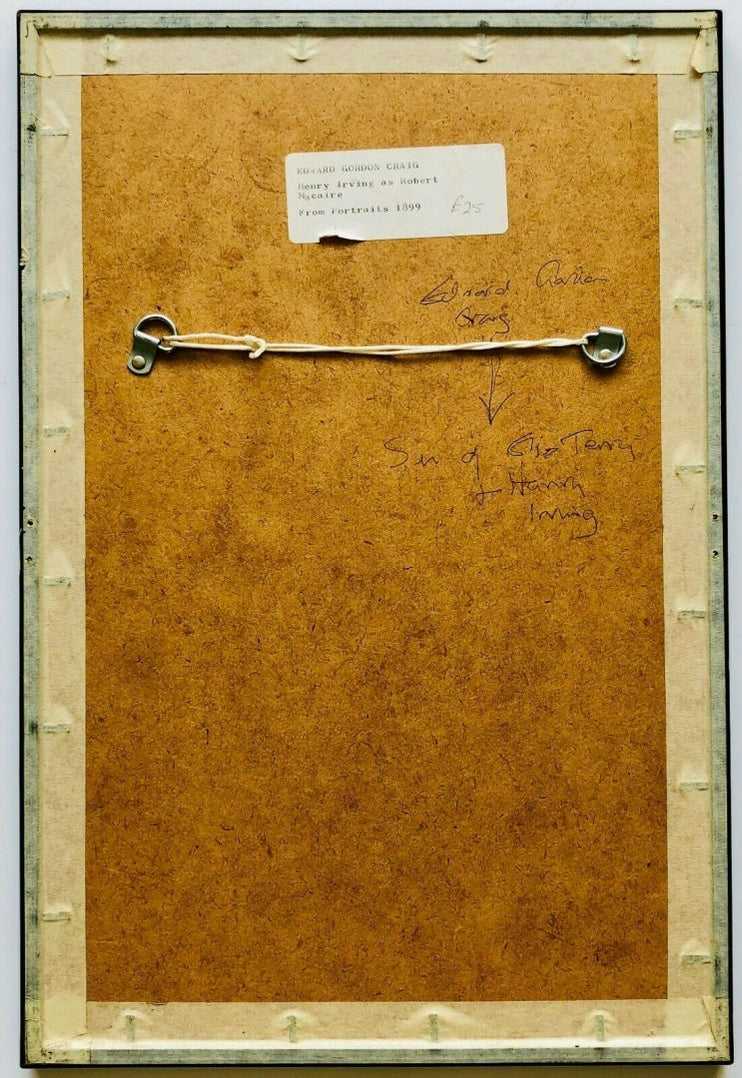 EDWARD GORDON CRAIG
Henry Irving as Robert
Macaire
From Portraits 1899 £25
Edward Gordon
Craig
Son of Ellen Terry
+ Henry
Irving